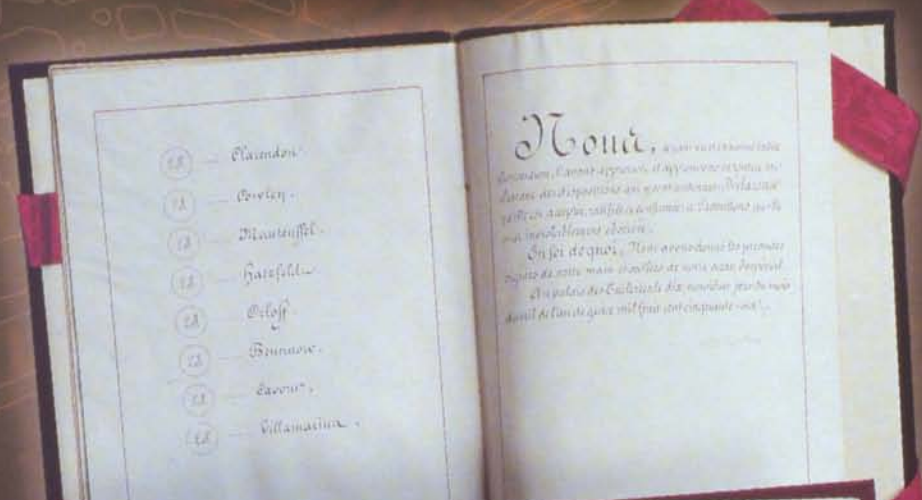 LS — Clarendon.
LS — Cowley.
LS — Manteuffel.
LS — Hatzfeldt.
LS — Orloff.
LS — Brunnow.
LS — Cavour.
LS — Villamarina.
Nous, ayant vu et examiné
approuvé et approuvons
des dispositions qui y sont contenues, Déclarons
acceptée, ratifiée et confirmée, et Promettons
inviolablement observée.
En foi de quoi, Nous avons donné les présentes
signées de notre main et scellées de notre sceau Impérial
Au palais des Tuileries le dix neuvième jour du mois
d'avril de l'an de grâce mil huit cent cinquante-six.